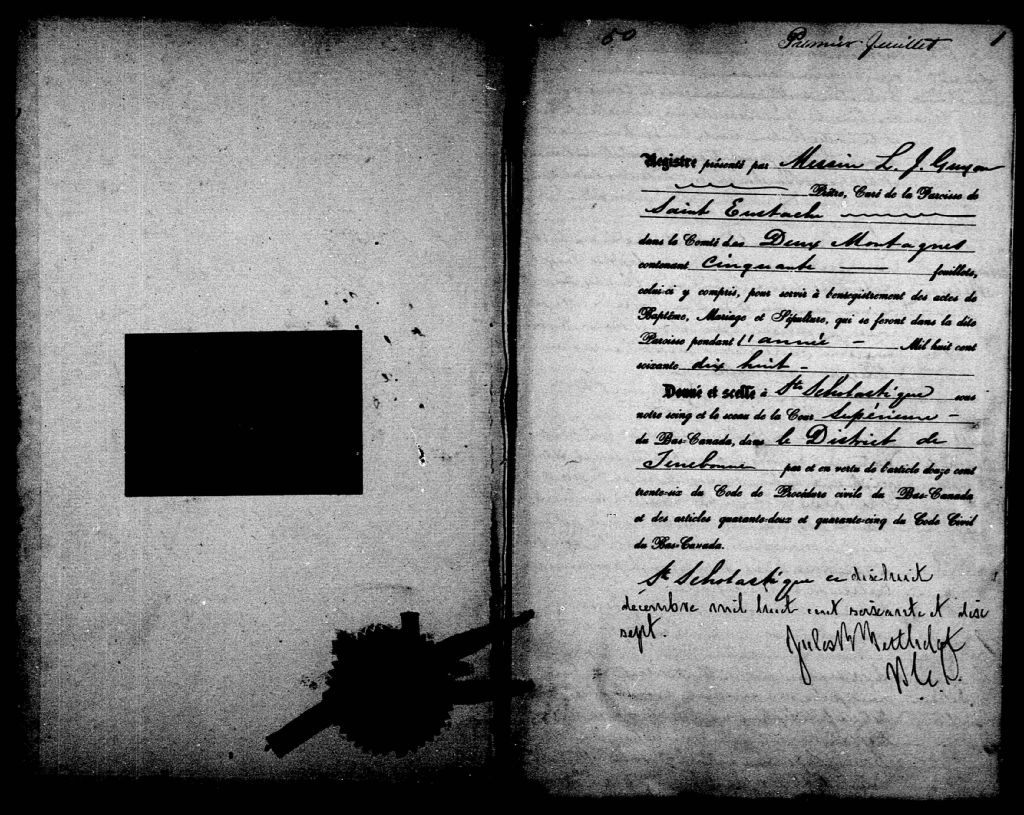 50 Premier feuillet 1
Registre présenté par Messire L. J. Guyon
Prêtre, Curé de la Paroisse de
Saint Eustache
dans le Comté des Deux Montagnes
contenant cinquante feuillets,
celui-ci y compris, pour servir à l'enregistrement des actes de
Baptême, Mariage et Sépulture, qui se feront dans la dite
Paroisse pendant l'année Mil huit cent
soixante dix huit
Donné et scellé à Ste Scholastique sous
notre seing et le sceau de la Cour Supérieure
du Bas-Canada, dans le District de
Terrebonne par et en vertu de l'article douze cent
trente-six du Code de Procédure civile du Bas-Canada
et des articles quarante-deux et quarante-cinq du Code Civil
du Bas-Canada.
Ste Scholastique ce dixhuit
décembre mil huit cent soixante et dix
sept.